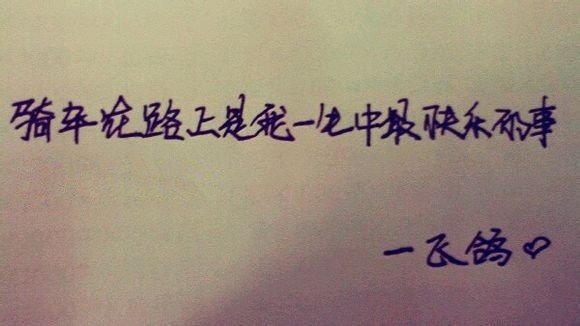 骑车在路上是我一生中最快乐的事
一飞鸽♡